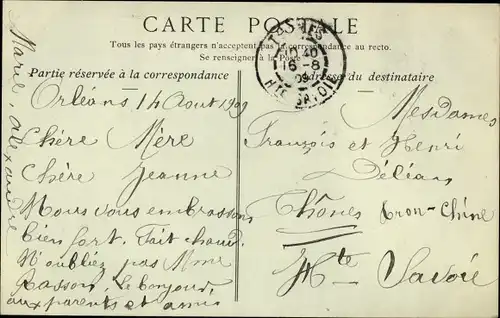 CARTE POSTALE
Tous les pays étrangers n'acceptent pas la correspondance au recto.
Se renseigner à la Poste
Partie réservée à la correspondance
Adresse du destinataire
THONES
16-8
09
HTE SAVOIE
Orléans 14 Aout 1909
Chère Mère
Chère Jeanne
Nous vous embrassons
bien fort. Fait chaud.
N'oubliez pas Mme
Le bonjour,
aux parents et amis
Marie, Alexandre
Mesdames
François et Henri
Délean
Thônes
Hte Savoie